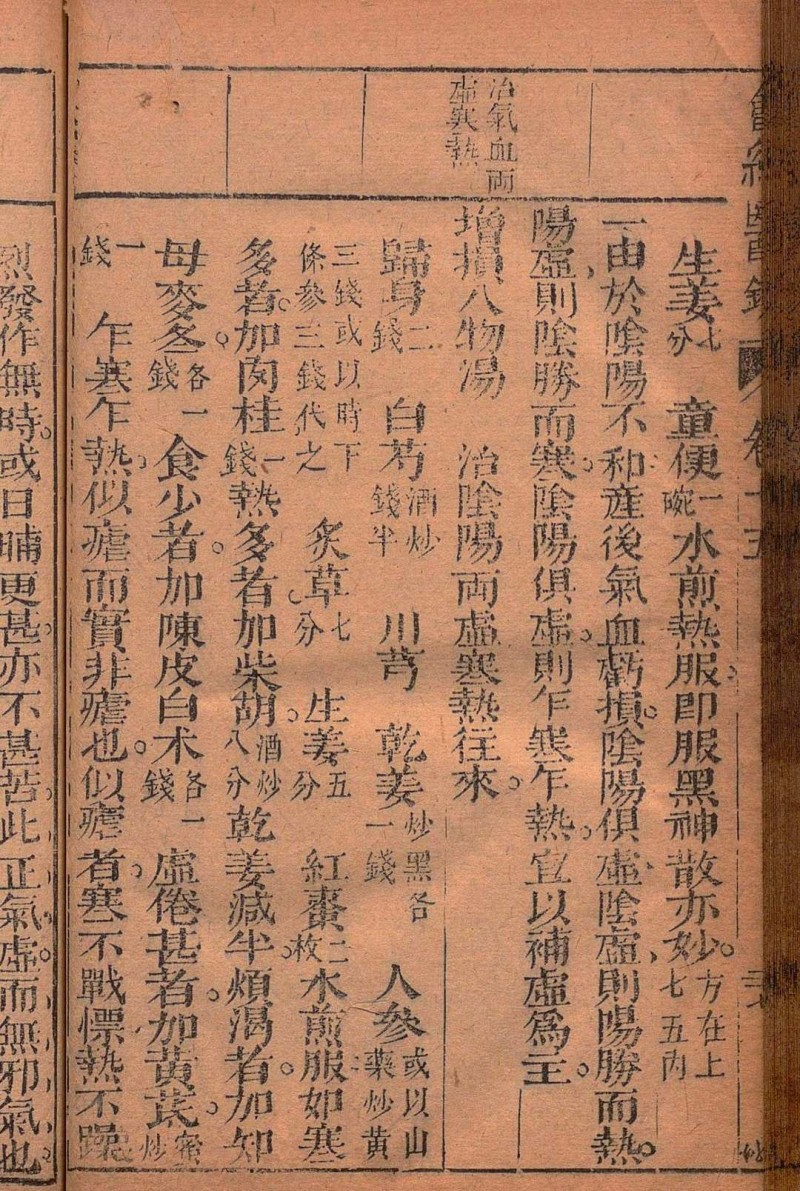 生姜七分　童便一碗水煎熱服即服黑神散亦妙方在上七五內
一由於陰陽不和產後氣血虧損陰陽俱虛陰虛則陽勝而熱
陽虛則陰勝而寒陰陽俱虛則乍寒乍熱宜以補虛爲主
治氣血兩虛寒熱
增損八物湯　治陰陽兩虛寒熱往來
歸身二錢　白芍酒炒錢半　川芎　乾姜炒黑各一錢　人參或以山藥炒黃
三錢或以時下條參三錢代之　炙草七分　生姜五分　紅棗二枚水煎服如寒
多者加肉桂一錢熱多者加柴胡酒炒八分乾姜減半煩渴者加知
母麥冬各一錢食少者加陳皮白术各一錢虛倦甚者加黃芪蜜炒
一錢　乍寒乍熱似瘧而實非瘧也似瘧者寒不戰慄熱不躁
烈發作無時或日晡更甚亦不甚苦此正氣虛而無邪氣也